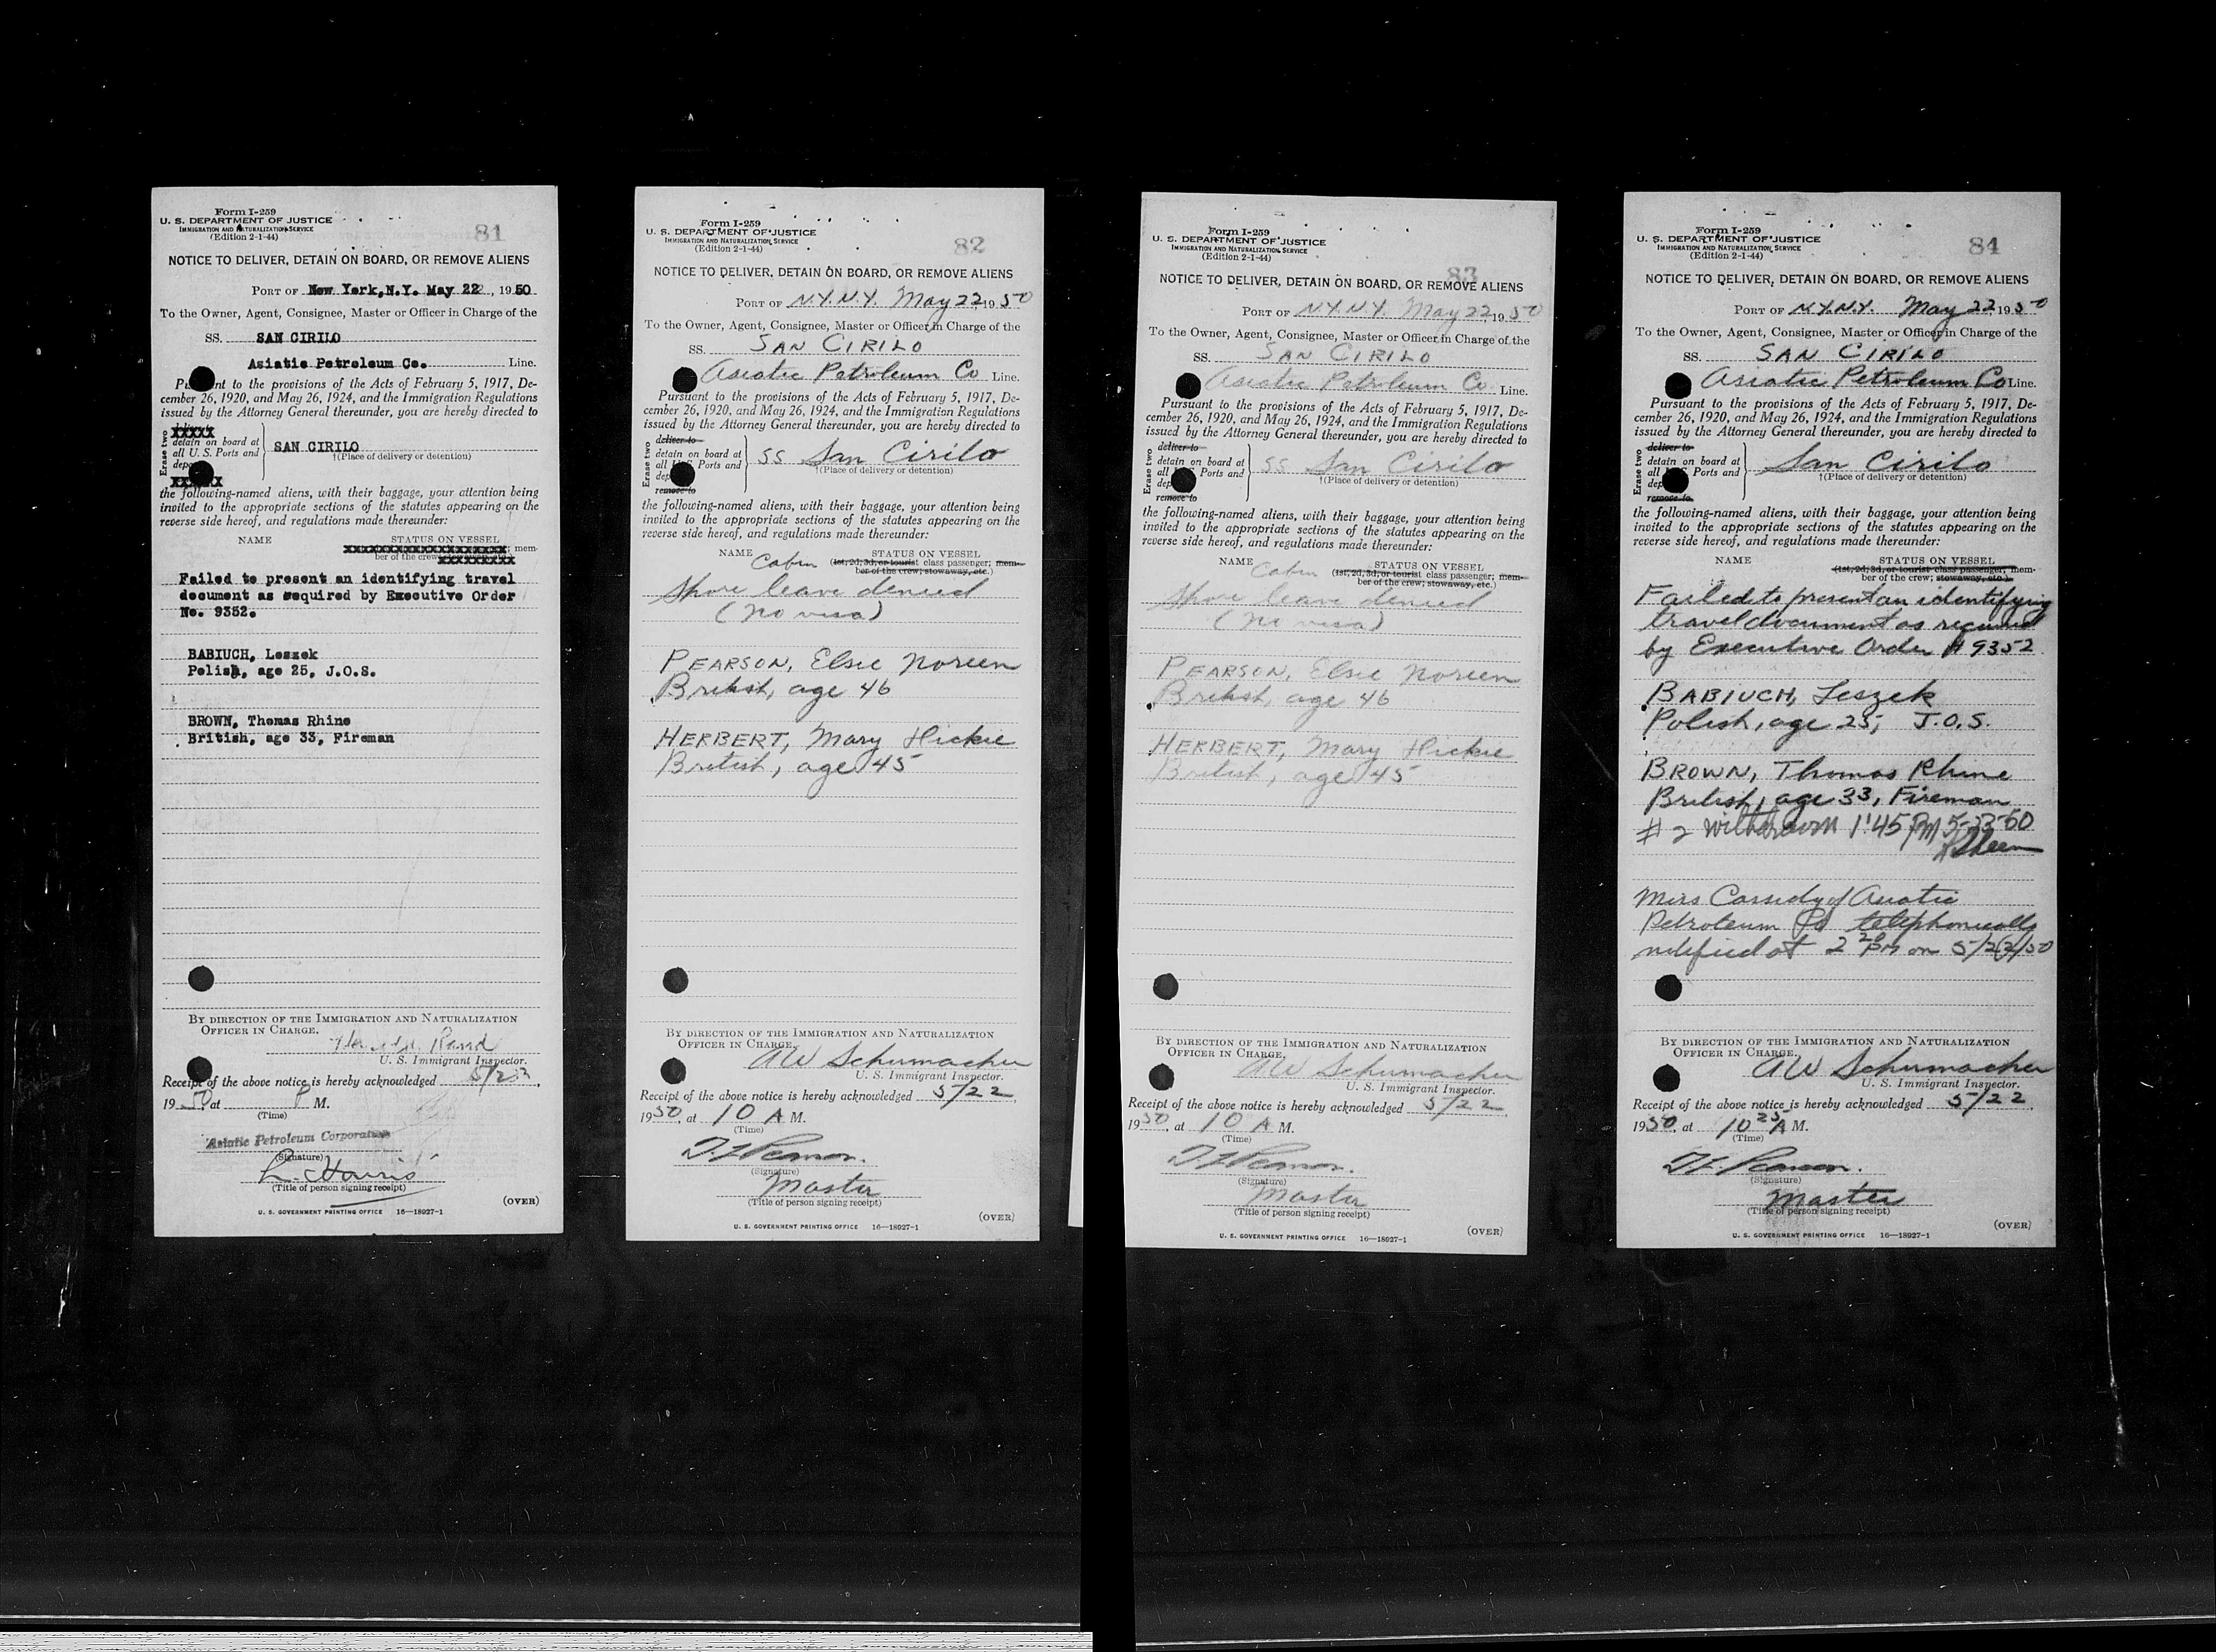 Form I-259
U. S. DEPARTMENT OF JUSTICE
IMMIGRATION AND NATURALIZATION SERVICE
(Edition 2-1-44)
81
NOTICE TO DELIVER, DETAIN ON BOARD, OR REMOVE ALIENS
PORT OF New York,N.Y. May 22, 1950
To the Owner, Agent, Consignee, Master or Officer in Charge of the
SS. SAN CIRILO
Asiatic Petroleum Co. Line.
Pursuant to the provisions of the Acts of February 5, 1917, De-
cember 26, 1920, and May 26, 1924, and the Immigration Regulations
issued by the Attorney General thereunder, you are hereby directed to
Erase two
XXXXX
detain on board at
all U. S. Ports and
SAN CIRILO
†(Place of delivery or detention)
the following-named aliens, with their baggage, your attention being
invited to the appropriate sections of the statutes appearing on the
reverse side hereof, and regulations made thereunder:
NAME STATUS ON VESSEL
; mem-
ber of the crew
Failed to present an identifying travel
document as required by Executive Order
No. 9352.
BABIUCH, Leszek
Polish, age 25, J.O.S.
BROWN, Thomas Rhine
British, age 33, Fireman
BY DIRECTION OF THE IMMIGRATION AND NATURALIZATION
OFFICER IN CHARGE.
Rand
U. S. Immigrant Inspector.
Receipt of the above notice is hereby acknowledged
1950, at P M.
(Time)
Asiatic Petroleum Corporation
(Signature)
L. Harris
(Title of person signing receipt)
(OVER)
U. S. GOVERNMENT PRINTING OFFICE 16—18927-1
Form I-259
U. S. DEPARTMENT OF JUSTICE
IMMIGRATION AND NATURALIZATION SERVICE
(Edition 2-1-44)
82
NOTICE TO DELIVER, DETAIN ON BOARD, OR REMOVE ALIENS
PORT OF N.Y.N.Y. May 22, 1950
To the Owner, Agent, Consignee, Master or Officer in Charge of the
SS. SAN CIRILO
Asiatic Petroleum Co Line.
Pursuant to the provisions of the Acts of February 5, 1917, De-
cember 26, 1920, and May 26, 1924, and the Immigration Regulations
issued by the Attorney General thereunder, you are hereby directed to
Erase two
deliver to
detain on board at
all U. S. Ports and
SS San Cirilo
†(Place of delivery or detention)
remove to
the following-named aliens, with their baggage, your attention being
invited to the appropriate sections of the statutes appearing on the
reverse side hereof, and regulations made thereunder:
NAME STATUS ON VESSEL
Cabin (1st, 2d, 3d, or tourist class passenger; mem-
ber of the crew; stowaway, etc.)
Shore leave denied
(no visa)
PEARSON, Elsie Noreen
British, age 46
HERBERT, Mary Hickie
British, age 45
BY DIRECTION OF THE IMMIGRATION AND NATURALIZATION
OFFICER IN CHARGE.
AW Schumacher
U. S. Immigrant Inspector.
Receipt of the above notice is hereby acknowledged 5/22,
1950, at 10 A M.
(Time)
(Signature)
Master
(Title of person signing receipt)
(OVER)
U. S. GOVERNMENT PRINTING OFFICE 16—18927-1
Form I-259
U. S. DEPARTMENT OF JUSTICE
IMMIGRATION AND NATURALIZATION SERVICE
(Edition 2-1-44)
83
NOTICE TO DELIVER, DETAIN ON BOARD, OR REMOVE ALIENS
PORT OF N.Y.N.Y. May 22, 1950
To the Owner, Agent, Consignee, Master or Officer in Charge of the
SS. SAN CIRILO
Asiatic Petroleum Co. Line.
Pursuant to the provisions of the Acts of February 5, 1917, De-
cember 26, 1920, and May 26, 1924, and the Immigration Regulations
issued by the Attorney General thereunder, you are hereby directed to
Erase two
deliver to
detain on board at
all Ports and
SS San Cirilo
†(Place of delivery or detention)
remove to
the following-named aliens, with their baggage, your attention being
invited to the appropriate sections of the statutes appearing on the
reverse side hereof, and regulations made thereunder:
NAME STATUS ON VESSEL
Cabin (1st, 2d, 3d, or tourist class passenger; mem-
ber of the crew; stowaway, etc.)
Shore leave denied
(no visa)
PEARSON, Elsie Noreen
British, age 46
HERBERT, Mary Hickie
British, age 45
BY DIRECTION OF THE IMMIGRATION AND NATURALIZATION
OFFICER IN CHARGE.
AW Schumacher
U. S. Immigrant Inspector.
Receipt of the above notice is hereby acknowledged 5/22,
1950, at 10 A M.
(Time)
(Signature)
Master
(Title of person signing receipt)
(OVER)
U. S. GOVERNMENT PRINTING OFFICE 16—18927-1
Form I-259
U. S. DEPARTMENT OF JUSTICE
IMMIGRATION AND NATURALIZATION SERVICE
(Edition 2-1-44)
84
NOTICE TO DELIVER, DETAIN ON BOARD, OR REMOVE ALIENS
PORT OF N.Y.N.Y. May 22, 1950
To the Owner, Agent, Consignee, Master or Officer in Charge of the
SS. SAN CIRILO
Asiatic Petroleum Co Line.
Pursuant to the provisions of the Acts of February 5, 1917, De-
cember 26, 1920, and May 26, 1924, and the Immigration Regulations
issued by the Attorney General thereunder, you are hereby directed to
Erase two
deliver to
detain on board at
all Ports and
San Cirilo
†(Place of delivery or detention)
remove to
the following-named aliens, with their baggage, your attention being
invited to the appropriate sections of the statutes appearing on the
reverse side hereof, and regulations made thereunder:
NAME STATUS ON VESSEL
(1st, 2d, 3d, or tourist class passenger; mem-
ber of the crew; stowaway, etc.)
Failed to present an identifying
travel document as required
by Executive Order # 9352
BABIUCH, Leszek
Polish, age 25, J.O.S.
BROWN, Thomas Rhine
British, age 33, Fireman
# 2 withdrawn 1:45 PM
Miss Cassidy of Asiatic
Petroleum Co telephonically
notified at 2 20 PM on 5/22/50
BY DIRECTION OF THE IMMIGRATION AND NATURALIZATION
OFFICER IN CHARGE.
AW Schumacher
U. S. Immigrant Inspector.
Receipt of the above notice is hereby acknowledged 5/22,
1950, at 10 25 A M.
(Time)
(Signature)
Master
(Title of person signing receipt)
(OVER)
U. S. GOVERNMENT PRINTING OFFICE 16—18927-1